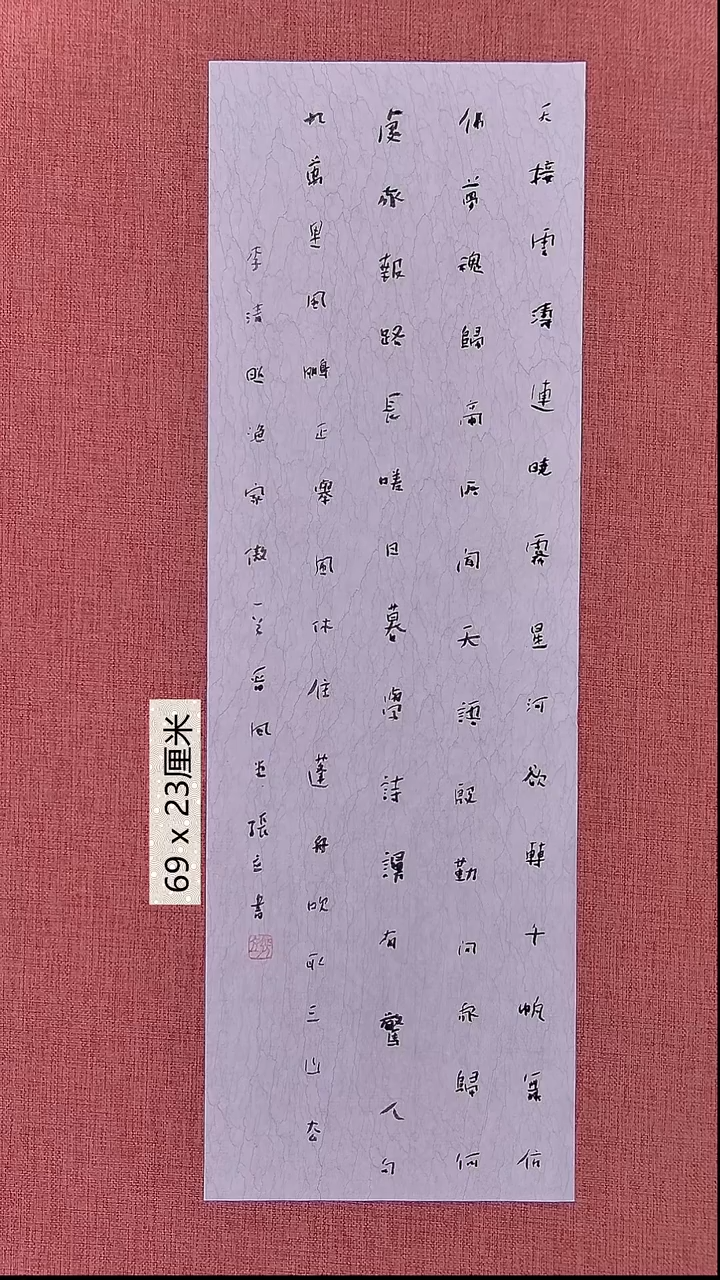 天接雲濤連曉霧星河欲轉千帆舞仿
佛夢魂歸帝所聞天語殷勤問我歸何
處我報路長嗟日暮學詩謾有驚人句
九萬里風鵬正舉風休住蓬舟吹取三山去
李清照漁家傲一首晉風堂張立書
69 x 23厘米